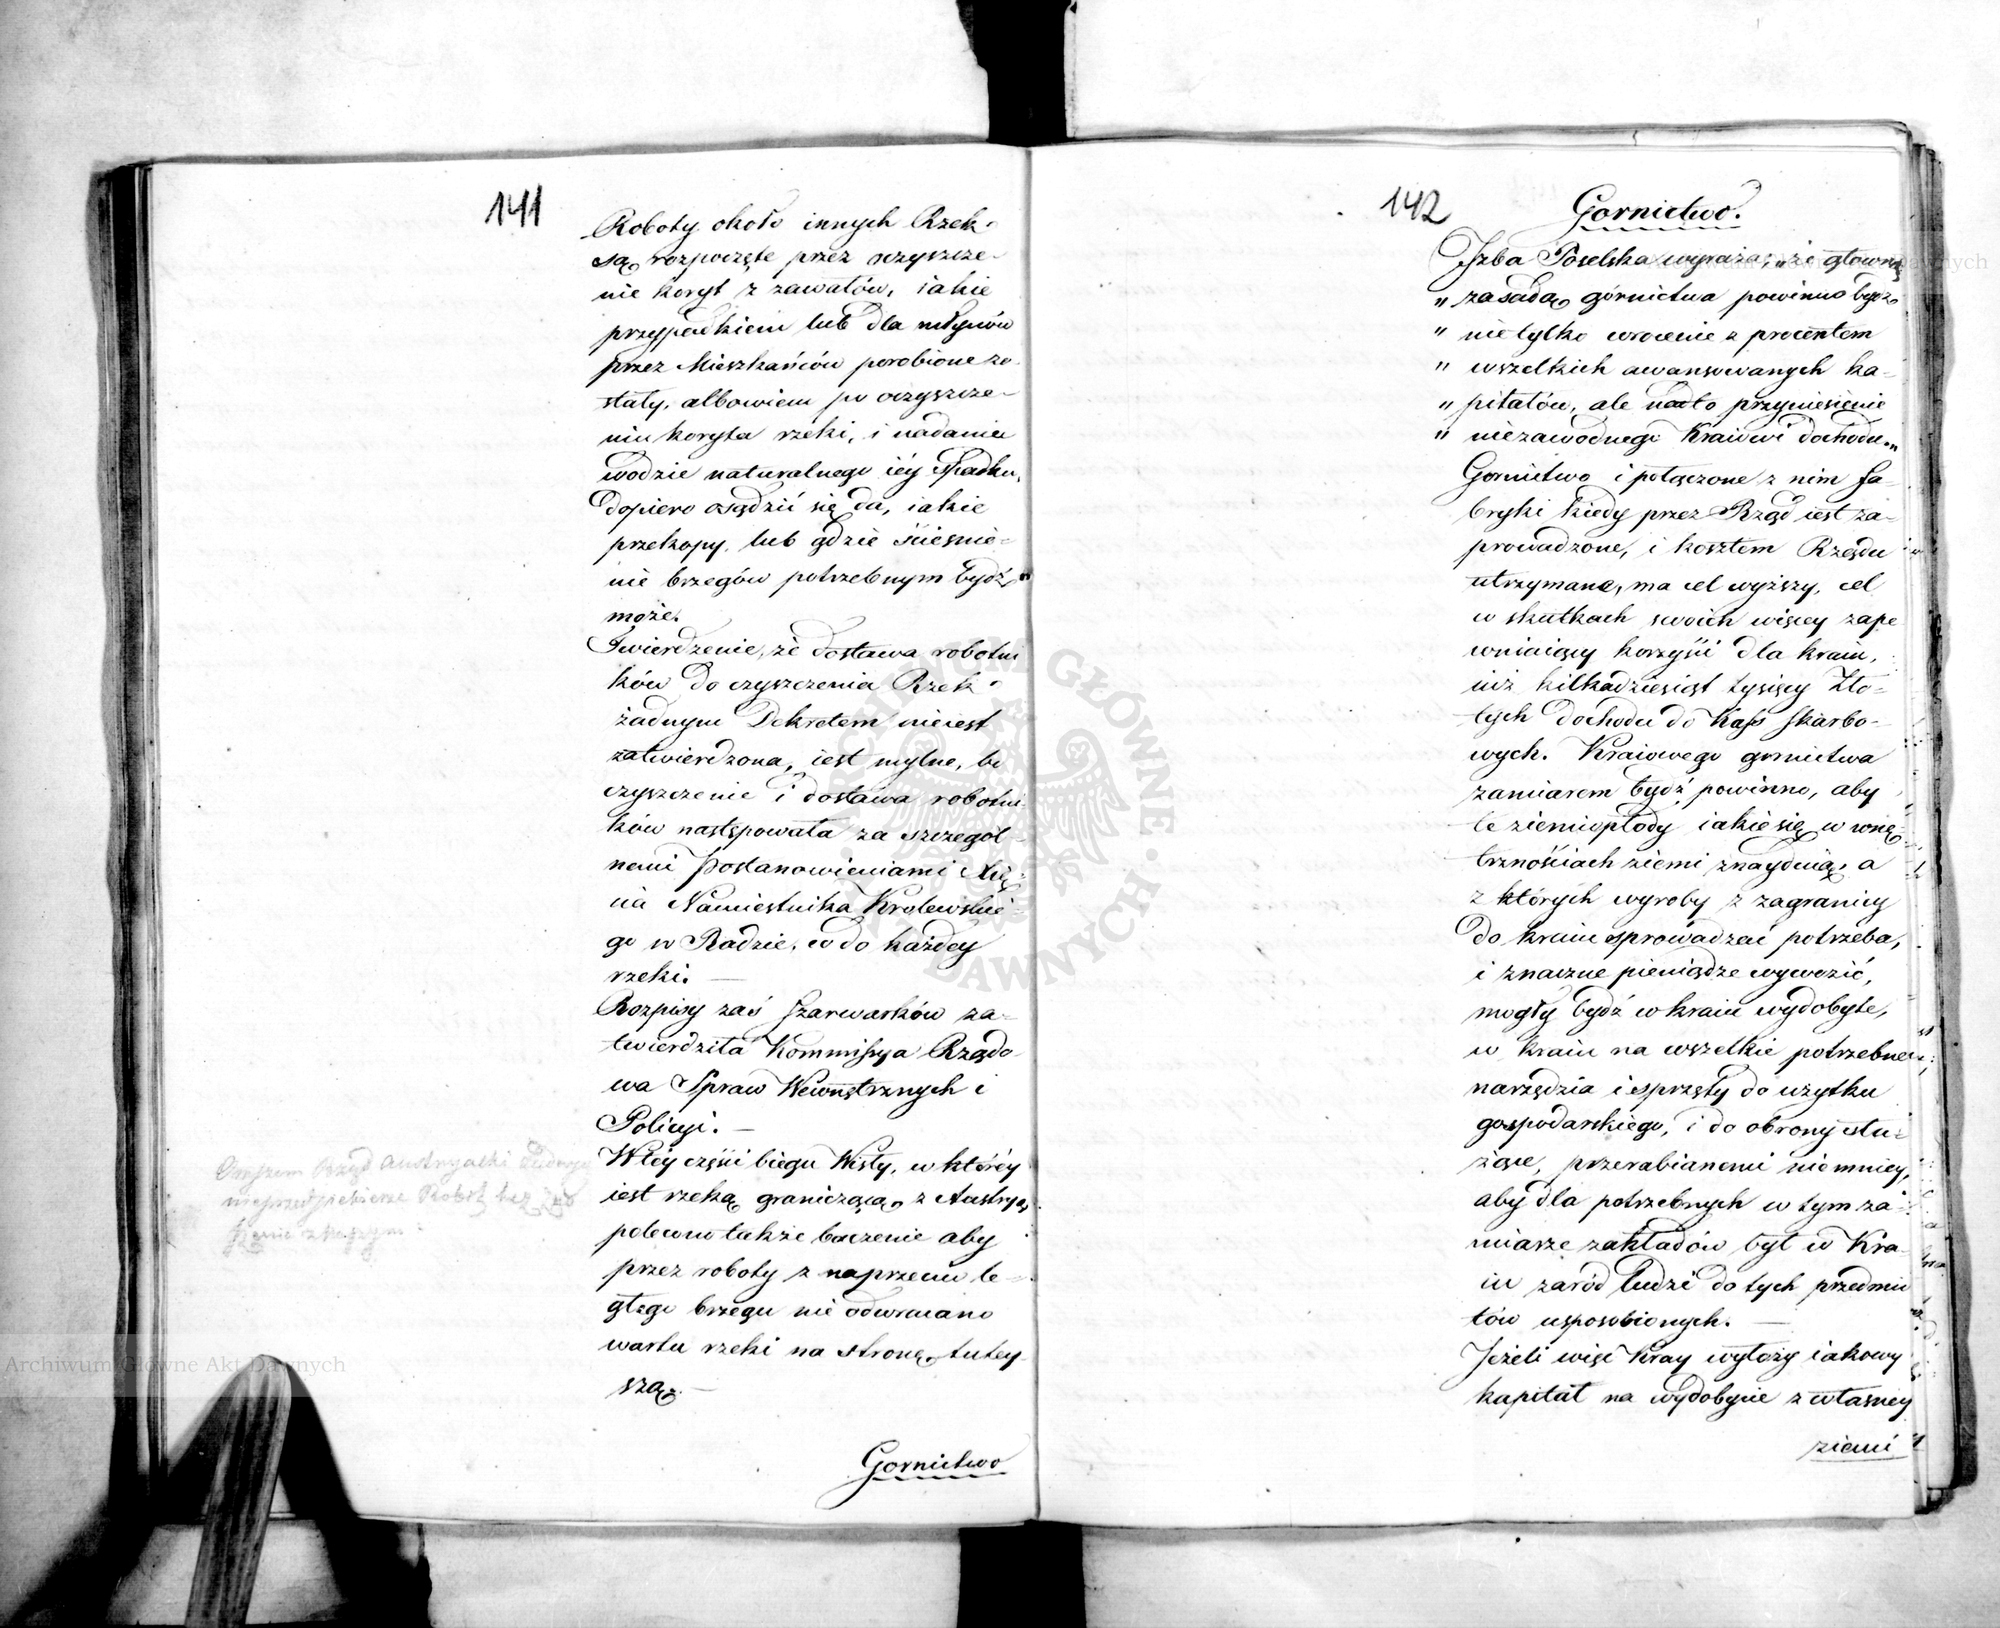 141
Roboty około innych Rzek
są rozpoczęte przez oczyszcze-
nie koryt z zawałów, iakie
przypadkiem lub dla młynów
przez Mieszkańców porobione zo-
stały, albowiem po oczyszcze-
niu koryta rzeki, i nadaniu
wodzie naturalnego iéy spadku,
dopiero osądzić się da, iakie
przekopy, lub gdzie ścieśnie-
nie brzegów potrzebnym bydź
może.
Twierdzenie, że dostawa robotni
ków do czyszczenia Rzek
żadnym Dekretem nieiest
zatwierdzona, iest mylne, bo
czyszczenie i dostawa robotni-
ków następowała za szczegól-
nemi postanowieniami Xię-
cia Namiestnika Królewskie-
go w Radzie, co do każdey
rzeki. —
Rozpisy zaś szarwarków za-
twierdziła Kommissya Rządo-
wa Spraw Wewnętrznych i
Policyi. —
W téy części biegu Wisły, w któréy
iest rzeką graniczącą z Austryą,
polecono także baczenie aby
przez roboty z naprzeciw le-
głego brzegu nie odwracano
wartu rzeki na stronę tutey-
szą. —
Rząd Austryacki
Robót bez
Gornictwo
142
Gornictwo.
Izba Poselska wyraża; „że główną
„ zasadą górnictwa powinno bydź
„ nie tylko wrócenie z procentem
„ wszelkich awansowanych ka-
„ pitałów, ale nadto przyniesienie
„ niezawodnego Kraiowi dochodu.„
Gornictwo i połączone z nim fa-
bryki kiedy przez Rząd iest za-
prowadzone, i kosztem Rządu
utrzymane, ma cel wyższy, cel
w skutkach swoich więcey zape
wniaiący korzyści dla kraiu,
niż kilkadziesiąt tysięcy Zło-
tych dochodu do Kass skarbo-
wych. Kraiowego gornictwa
zamiarem bydź powinno, aby
te ziemiopłody iakie się w wnę-
trznościach ziemi znayduią, a
z których wyroby z zagranicy
do kraiu sprowadzać potrzeba,
i znaczne pieniądze wywozić,
mogły bydź w kraiu wydobyte,
w kraiu na wszelkie potrzebne
narzędzia i sprzęty do użytku
gospodarskiego, i do obrony słu-
żące, przerabianemi niemniey,
aby dla potrzebnych w tym za-
miarze zakładów był w Kra-
iu zaród ludzi do tych przedmio
tów usposobionych. —
Jeżeli więc Kray wyłoży iakowy
kapitał na wydobycie z własney
ziemi
Archiwum Główne Akt Dawnych